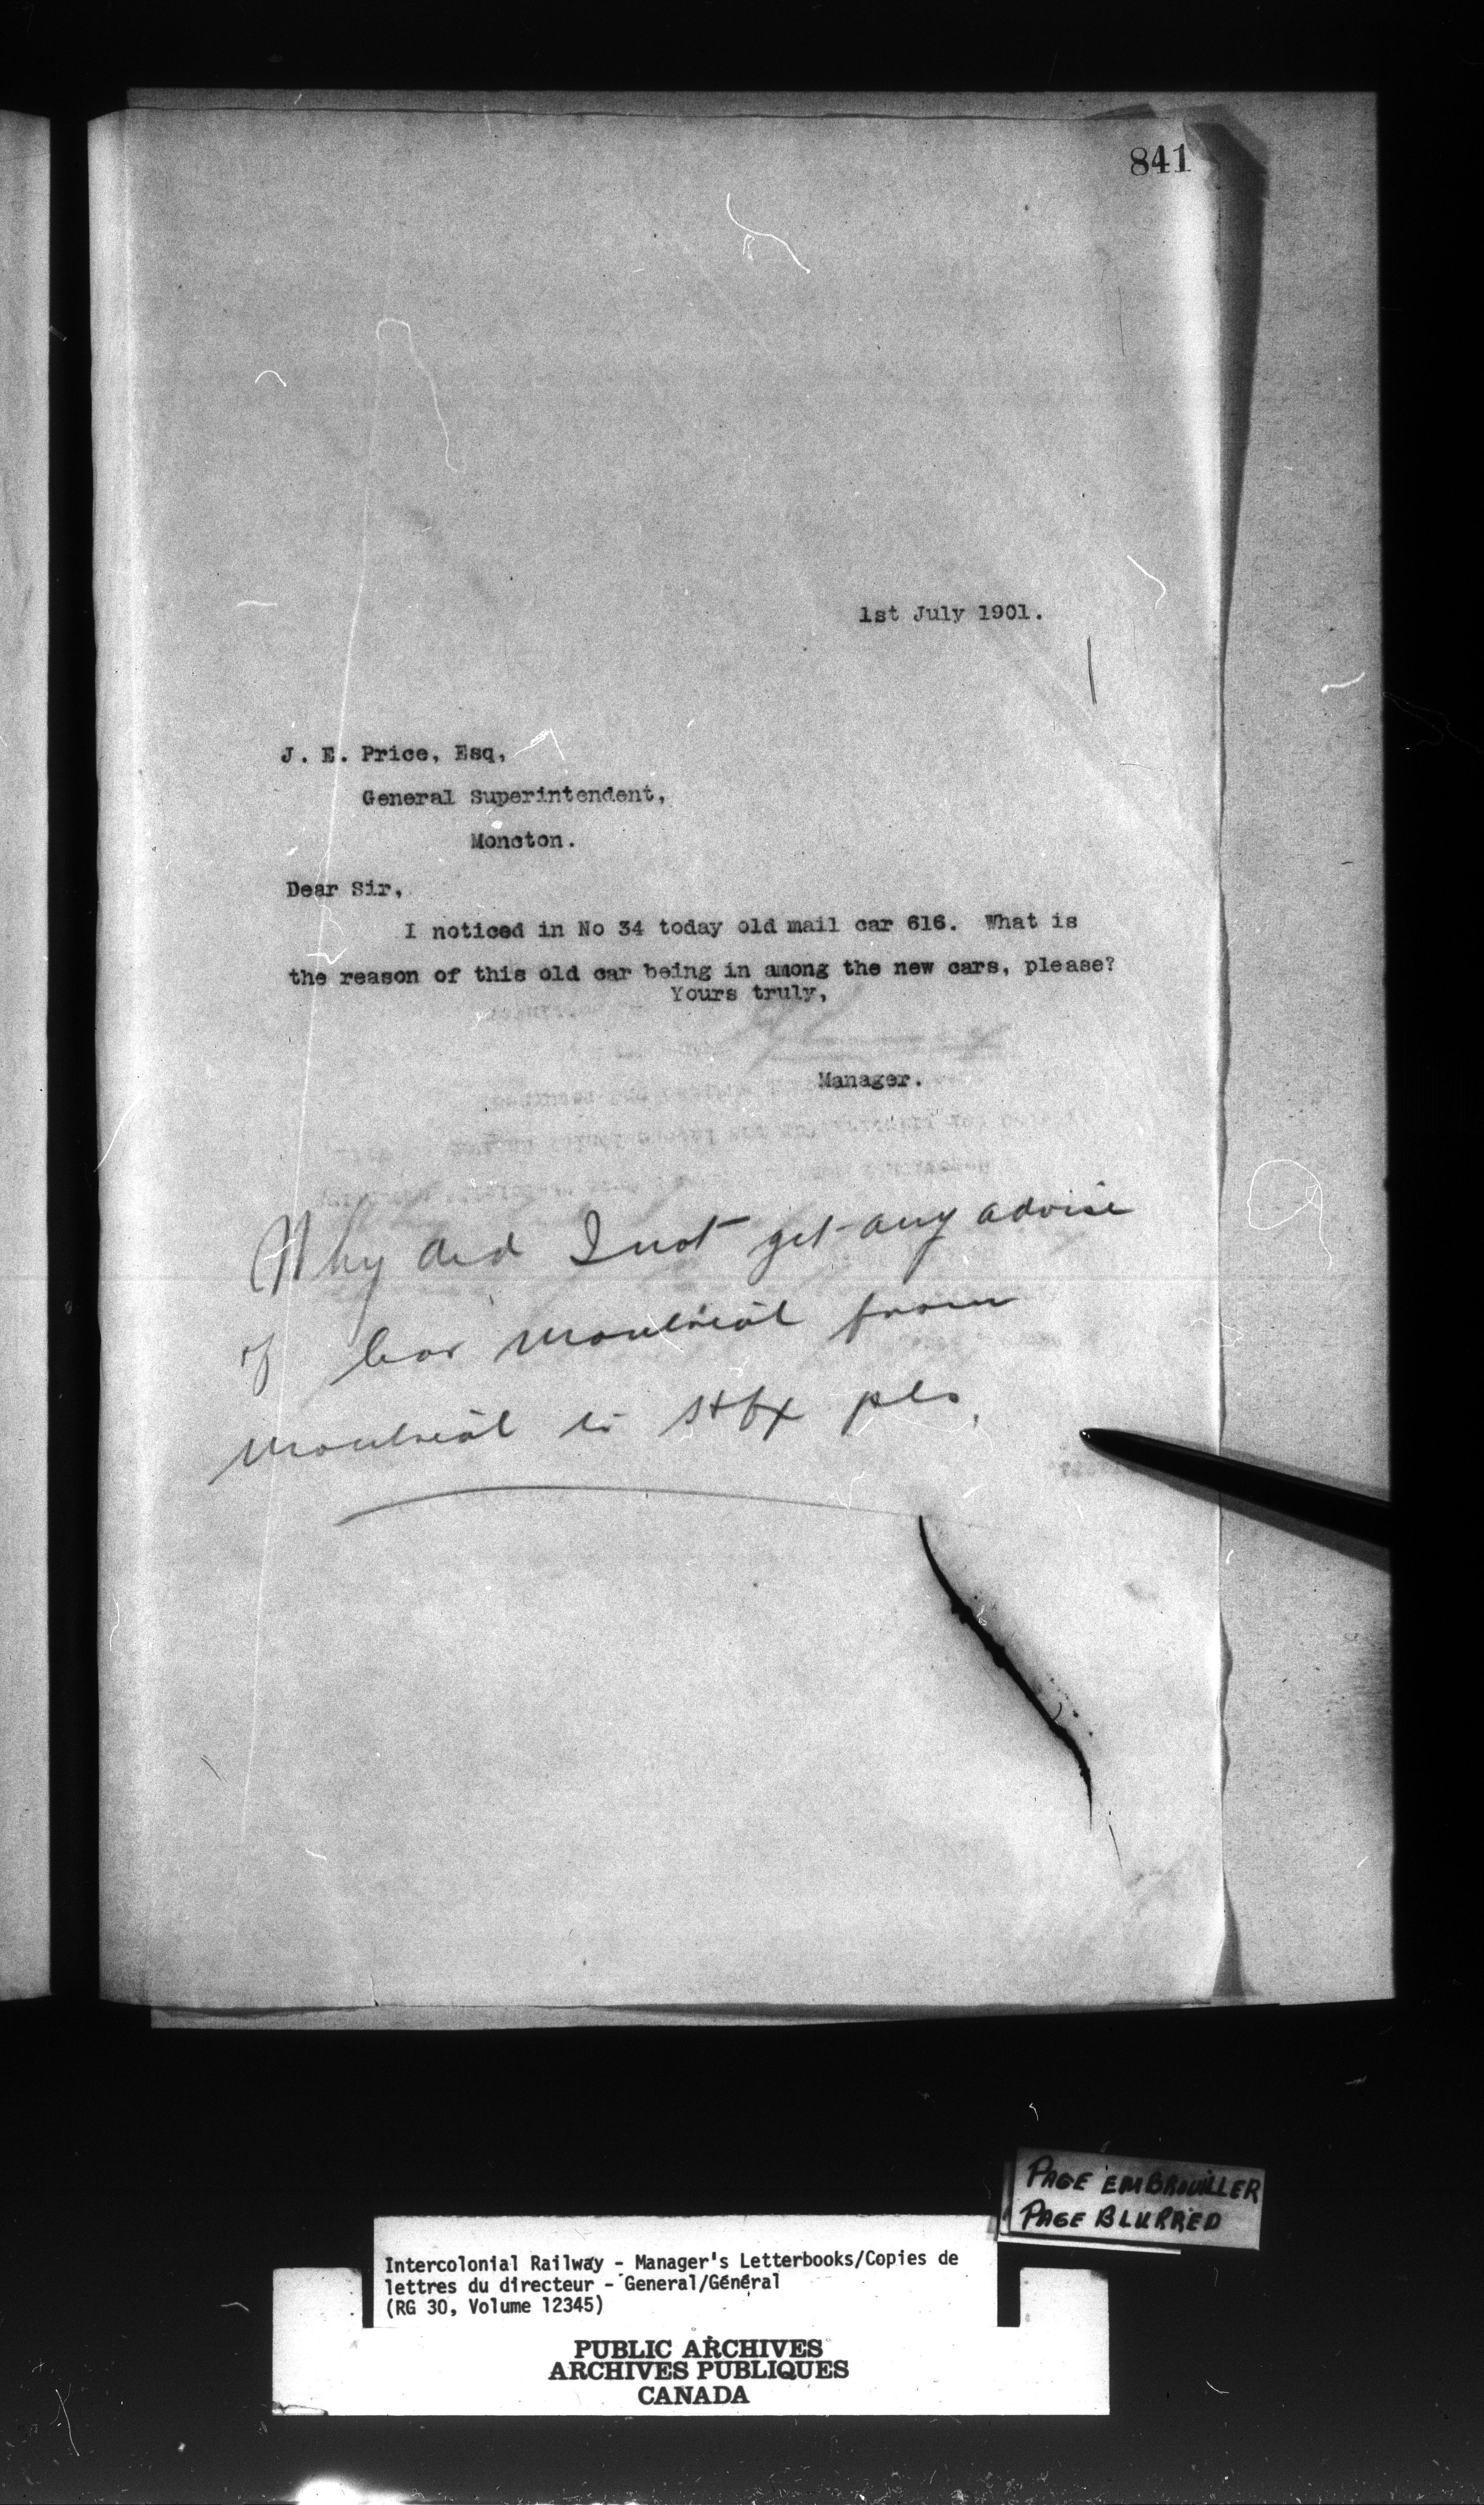 841
1st July 1901.
J. E. Price, Esq,
General Superintendent,
Moncton.
Dear Sir,
I noticed in No 34 today old mail car 616. What is
the reason of this old car being in among the new cars, please?
Yours truly,
Manager.
Why did I not get any advise
of Car Montreal from
Montreal to Hfx pls.
PAGE EMBROUILLER
PAGE BLURRED
Intercolonial Railway - Manager's Letterbooks/Copies de
lettres du directeur - General/Général
(RG 30, Volume 12345)
PUBLIC ARCHIVES
ARCHIVES PUBLIQUES
CANADA